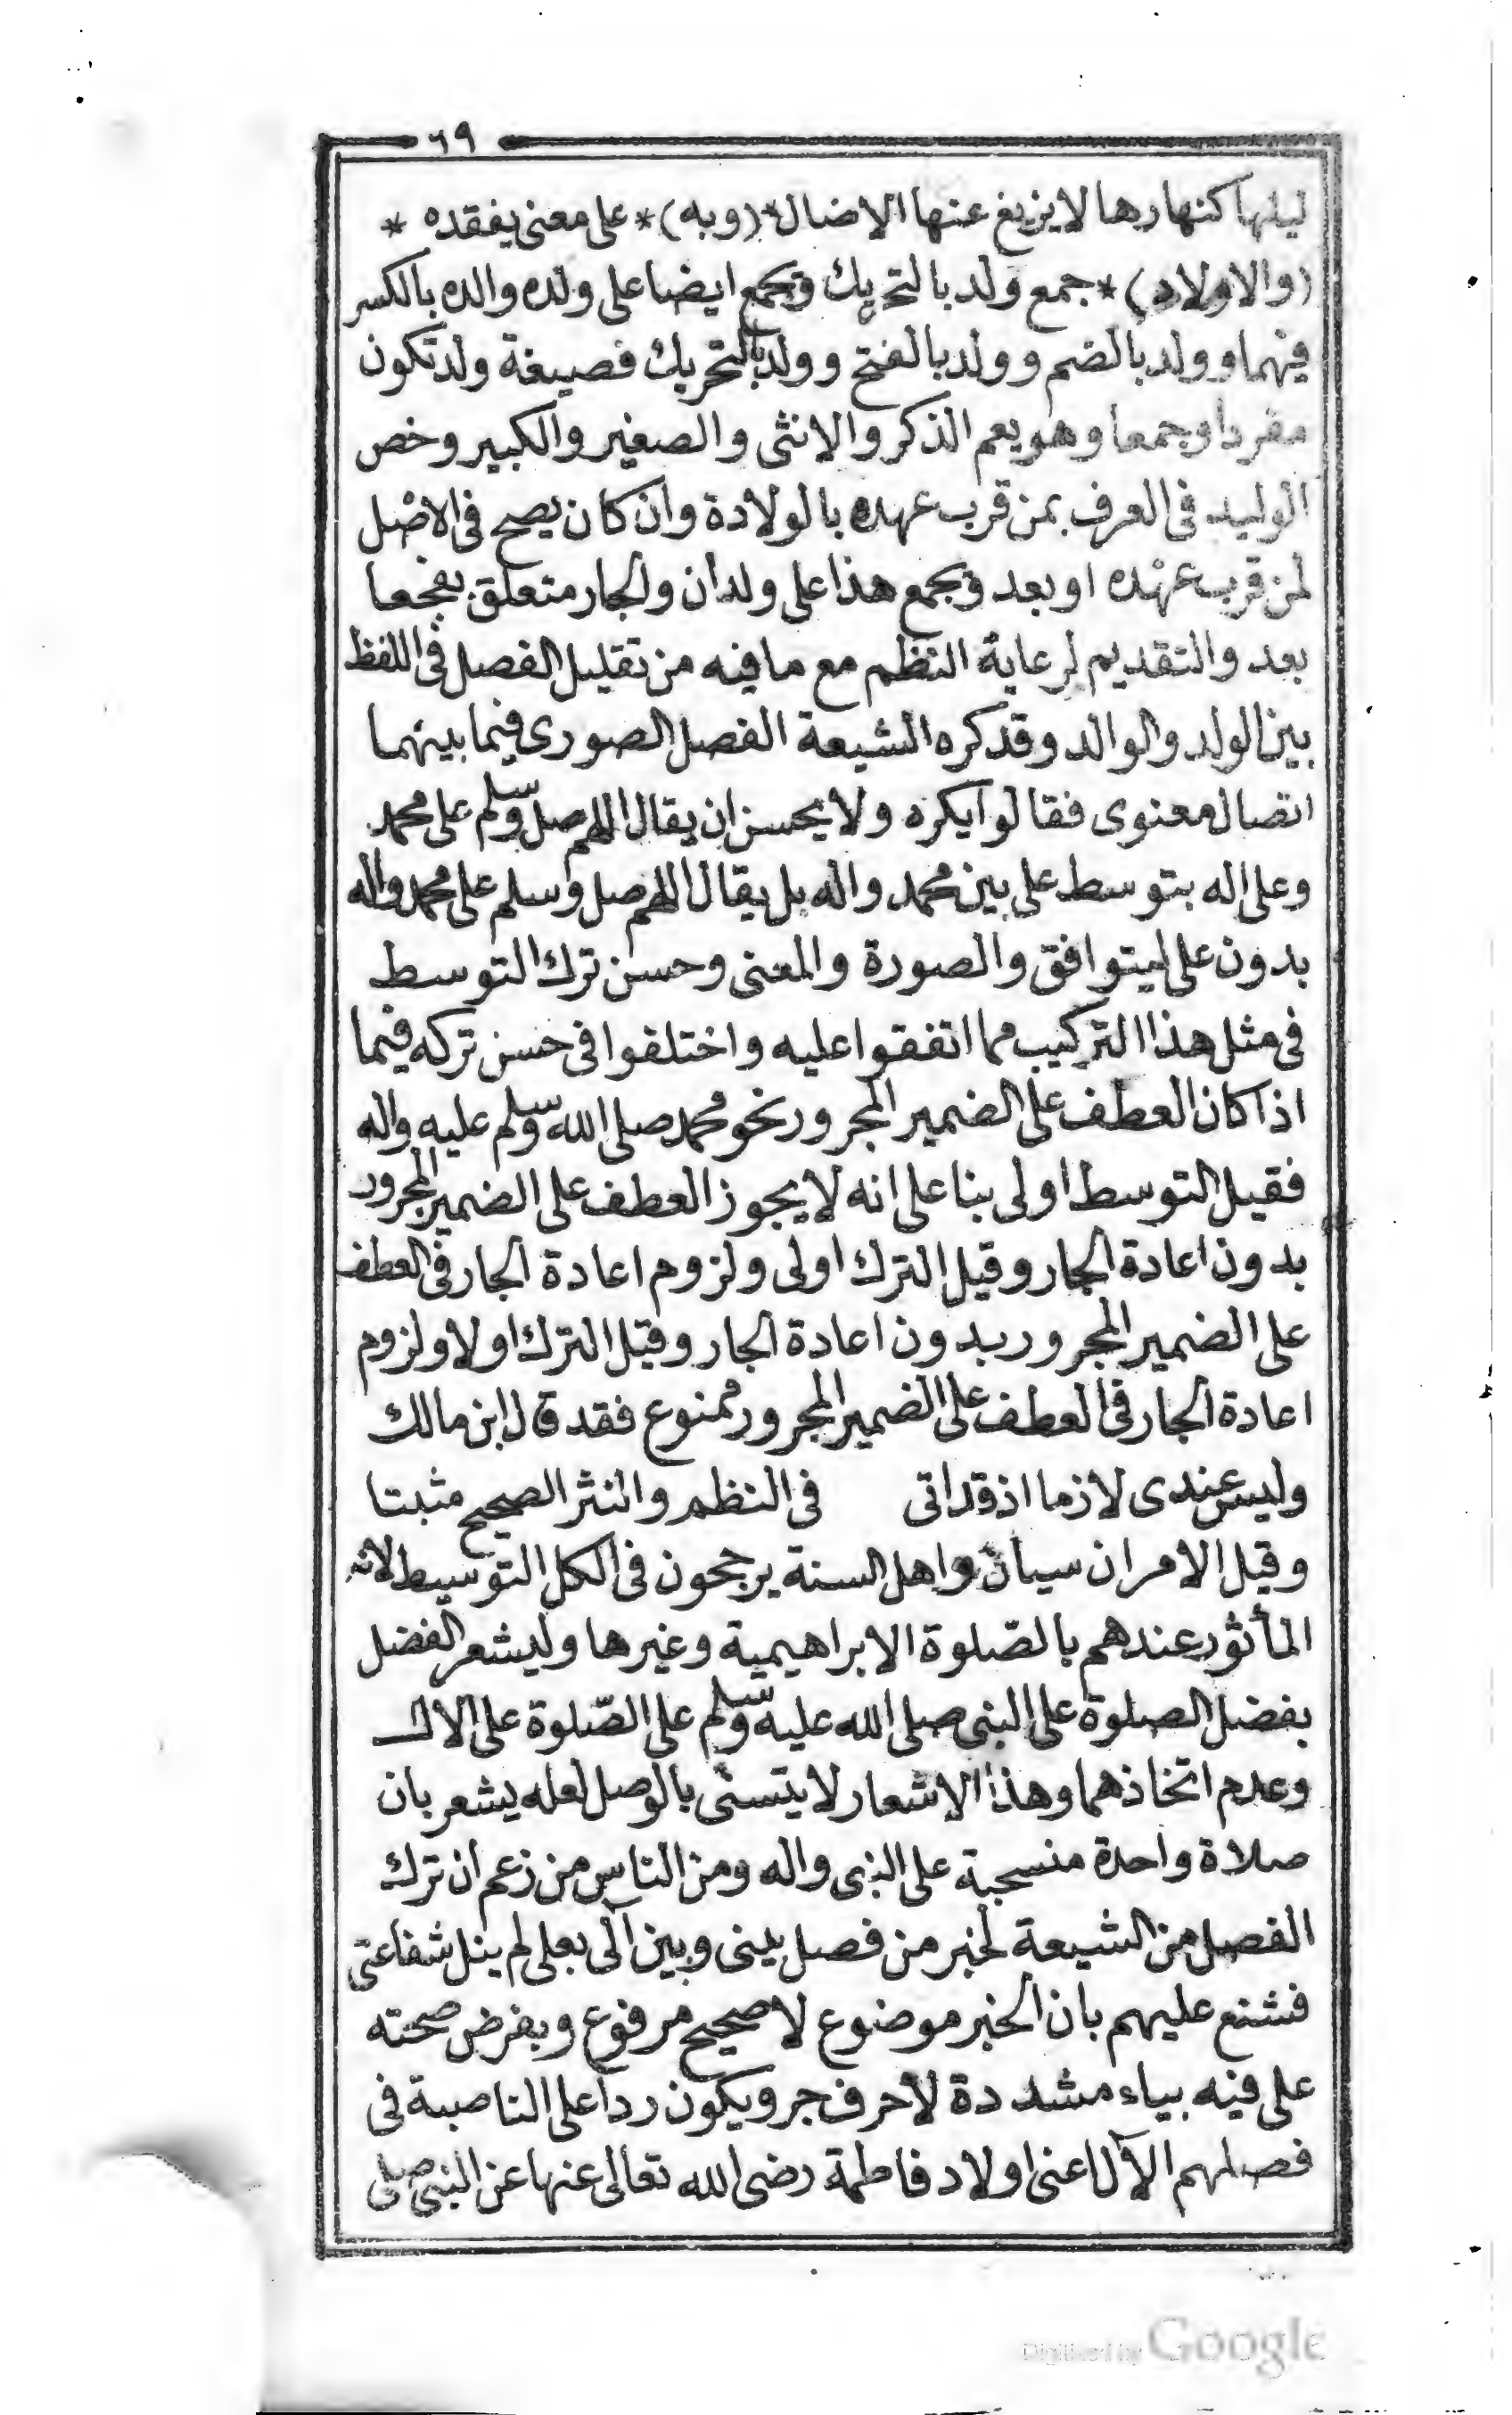 ٦٩
ليلها كنهارها لا يزيغ عنها الا ضال *(وبه)* على معنى يفقده *
(والاولاد)* جمع ولد بالتحريك ويجمع ايضا على ولده والده بالكسر
فيهما وولد بالضم وولد بالفتح وولد بالتحريك فصيغة ولد تكون
مفردا وجمعا وهو يعم الذكر والانثى والصغير والكبير وخص
الوليد فى العرف بمن قرب عهده بالولادة وان كان يصح فى الاصل
لمن قرب عهده او بعد ويجمع هذا على ولدان والجار متعلق بفجعا
بعد والتقديم لرعاية النظم مع ما فيه من تقليل الفصل فى اللفظ
بين الولد والوالد وقد كره الشيعة الفصل الصورى فيما بينهما
اتصال معنوى فقالوا يكره ولا يحسن ان يقال اللهم صل وسلم على محمد
وعلى اله بتوسط على بين محمد واله بل يقال اللهم صل وسلم على محمد واله
بدون على ليتوافق والصورة والمعنى وحسن ترك التوسط
فى مثل هذا التركيب مما اتفقوا عليه واختلفوا فى حسن تركه فيما
اذا كان العطف على الضمير المجرور نحو محمد صلى الله وسلم عليه واله
فقيل التوسط اولى بنا على انه لا يجوز العطف على الضمير المجرور
بدون اعادة الجار وقيل الترك اولى ولزوم اعادة الجار فى العطف
على الضمير المجرور بدون اعادة الجار وقيل الترك اولا ولزوم
اعادة الجار فى العطف على الضمير المجرور ممنوع فقد قال ابن مالك
وليس عندى لازما اذ قد اتى فى النظم والنثر الصحيح مثبتا
وقيل الامران سيان واهل السنة يرجحون فى الكل التوسيط لانه
المأثور عندهم بالصّلوة الابراهيمية وغيرها وليشعر الفضل
بفضل الصلوة على النبى صلى الله عليه وسلم على الصّلوة على الال
وعدم اتخاذهما وهذا الاشعار لا يتسنى بالوصل لعله يشعر بان
صلاة واحدة منسحبة على النبى واله ومن الناس من زعم ان ترك
الفصل من الشيعة لخبر من فصل بينى وبين آلى بعلى لم ينل شفاعتى
فشنع عليهم بان الخبر موضوع لا صحيح مرفوع وبفرض صحته
على فيه بياء مشددة لا حرف جر ويكون ردا على الناصبة فى
فصلهم الآل اعنى اولاد فاطمة رضى الله تعالى عنها عن النبى صلى
Digitized by Google